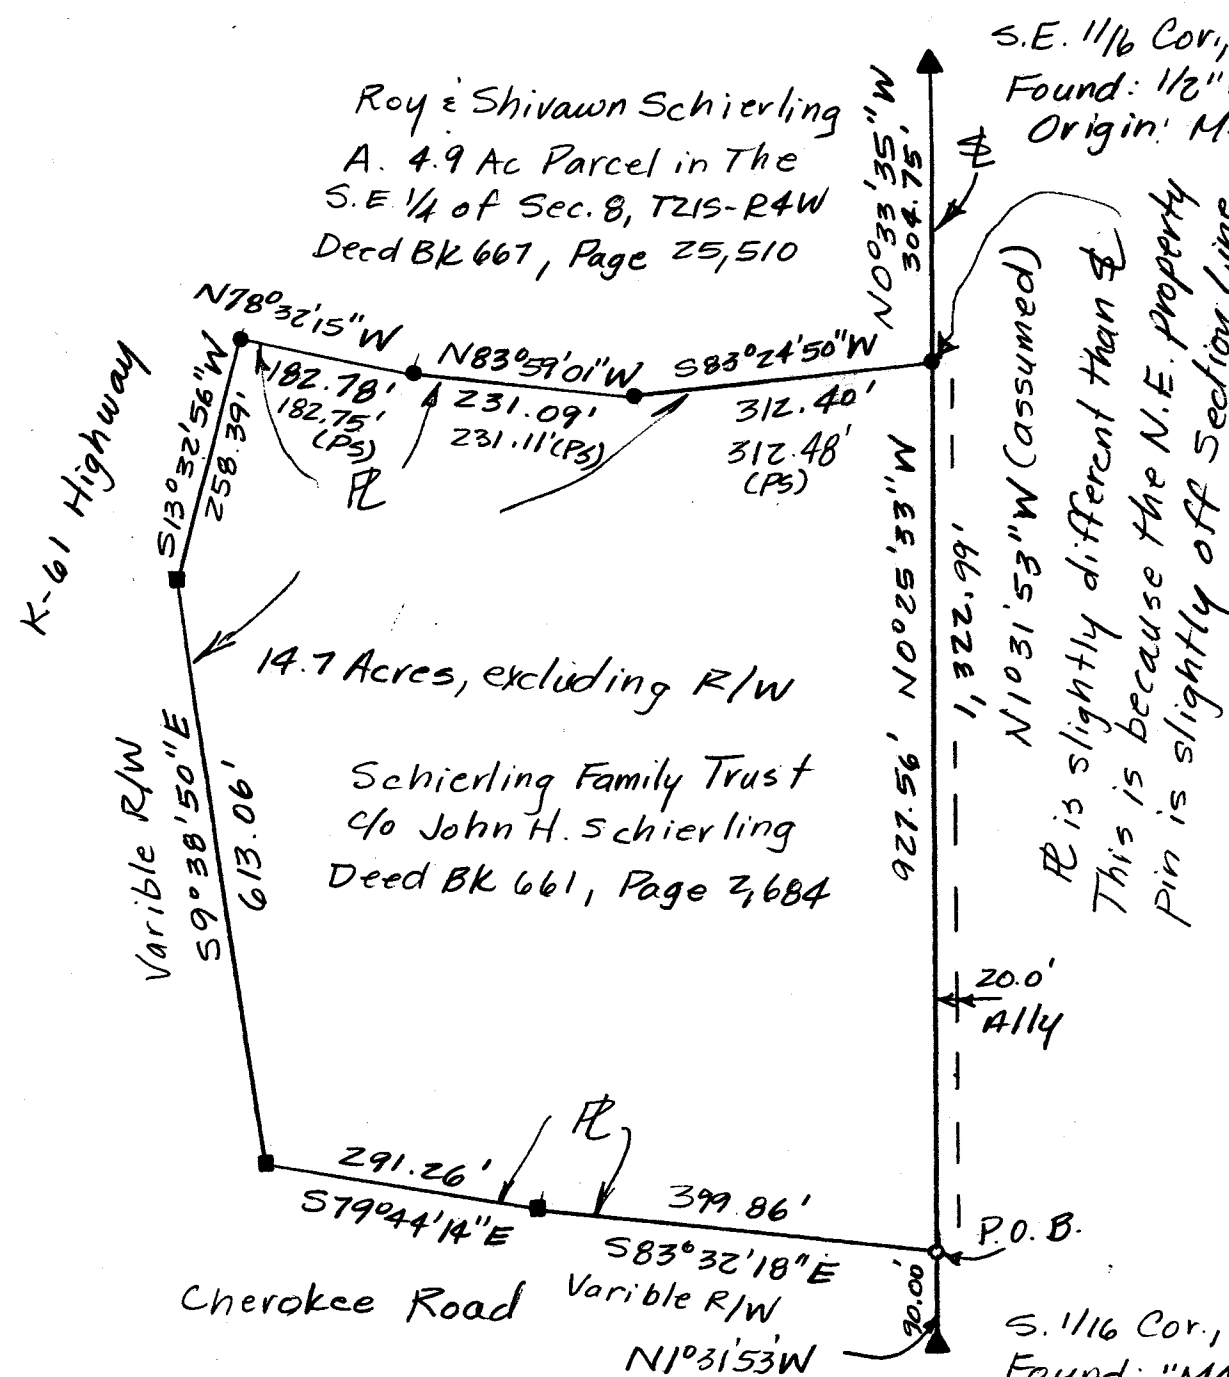 S.E. 1/16 Cor.,
Found: 1/2"
Origin: M
Roy & Shivawn Schierling
A. 4.9 Ac Parcel in The
S.E. 1/4 of Sec. 8, T21S-R4W
Deed BK 667, Page 25,510
N0°33'35"W
304.75'
N78°32'15"W
182.78'
182.75'
(PS)
N83°59'01"W
231.09'
231.11'(PS)
S83°24'50"W
312.40'
312.48'
(PS)
PL
K-61 Highway
S13°32'56"W
258.39'
14.7 Acres, excluding R/W
Schierling Family Trust
c/o John H. Schierling
Deed BK 661, Page 2,684
Varible R/W
S9°38'50"E
613.06'
927.56' N0°25'33"W
1,322.99'
N1°31'53"W (assumed)
PL is slightly different than
This is because the N.E. Property
pin is slightly off Section line
20.0'
Ally
PL
291.26'
S79°44'14"E
399.86'
S83°32'18"E
Varible R/W
Cherokee Road
P.O.B.
90.00'
N1°31'53"W
S. 1/16 Cor.,
Found: